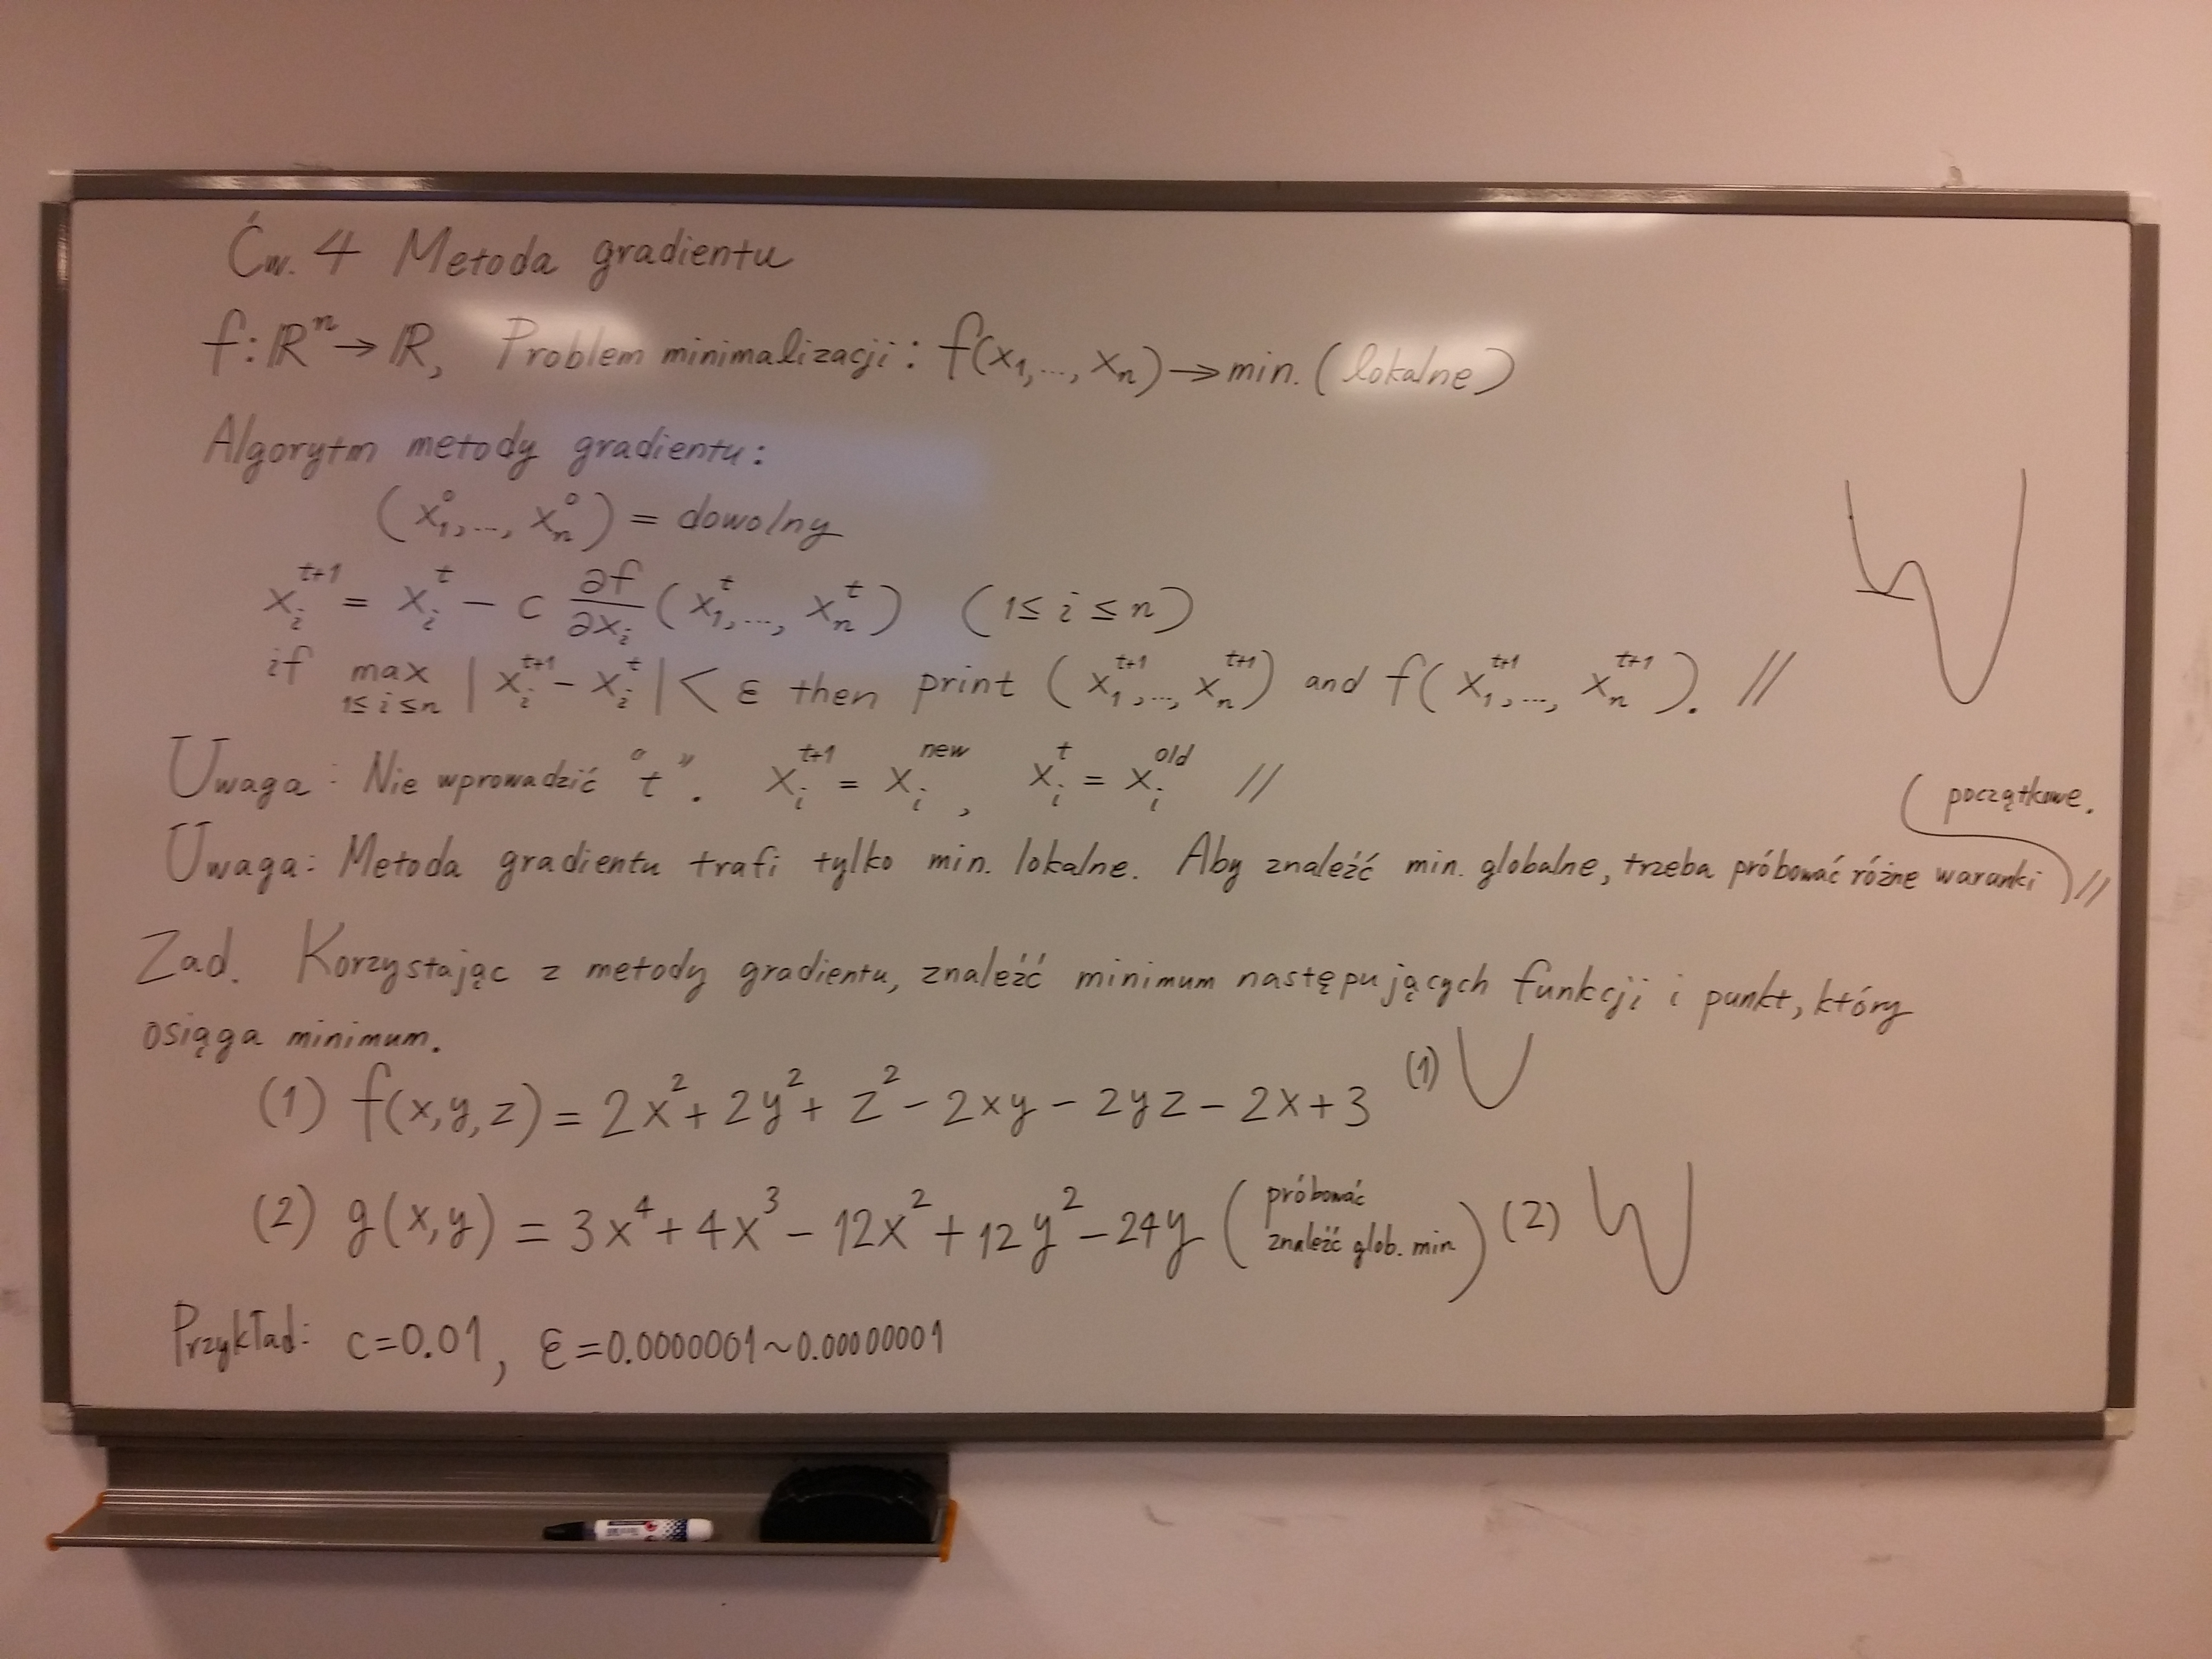 Ćw. 4 Metoda gradientu
f: ℝⁿ → ℝ, Problem minimalizacji: f(x₁,..., xₙ) → min. (lokalne)
Algorytm metody gradientu:
(x₁⁰,..., xₙ⁰) = dowolny
xᵢᵗ⁺¹ = xᵢᵗ − c ∂f/∂xᵢ (x₁ᵗ,..., xₙᵗ) (1 ≤ i ≤ n)
if max 1≤i≤n | xᵢᵗ⁺¹ − xᵢᵗ | < ε then print (x₁ᵗ⁺¹,..., xₙᵗ⁺¹) and f(x₁ᵗ⁺¹,..., xₙᵗ⁺¹). //
Uwaga: Nie wprowadzić "t". xᵢᵗ⁺¹ = xᵢⁿᵉʷ, xᵢᵗ = xᵢᵒˡᵈ //
Uwaga: Metoda gradientu trafi tylko min. lokalne. Aby znaleźć min. globalne, trzeba próbować różne warunki
początkowe. //
Zad. Korzystając z metody gradientu, znaleźć minimum następujących funkcji i punkt, który
osiąga minimum.
(1) f(x,y,z) = 2x² + 2y² + z² − 2xy − 2yz − 2x + 3 (1)
(2) g(x,y) = 3x⁴ + 4x³ − 12x² + 12y² − 24y (próbować znaleźć glob. min) (2)
Przykład: c=0.01, ε=0.0000001~0.00000001